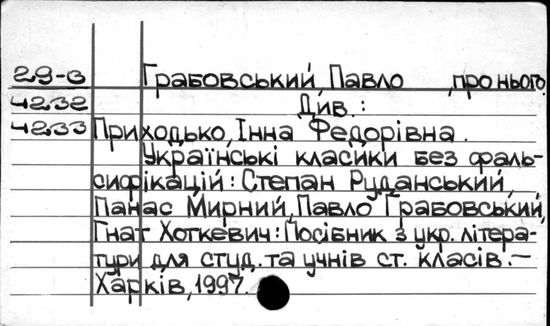 29-в Грабовський, Павло, про нього.
4232 Див.:
4233 Приходько, Інна Федорівна.
Українські класики без фаль-
сифікацій: Степан Руданський,
Панас Мирний, Павло Грабовський,
Гнат Хоткевич: Посібник з укр. літера-
тури для студ. та учнів ст. класів.—
Харків, 1997.